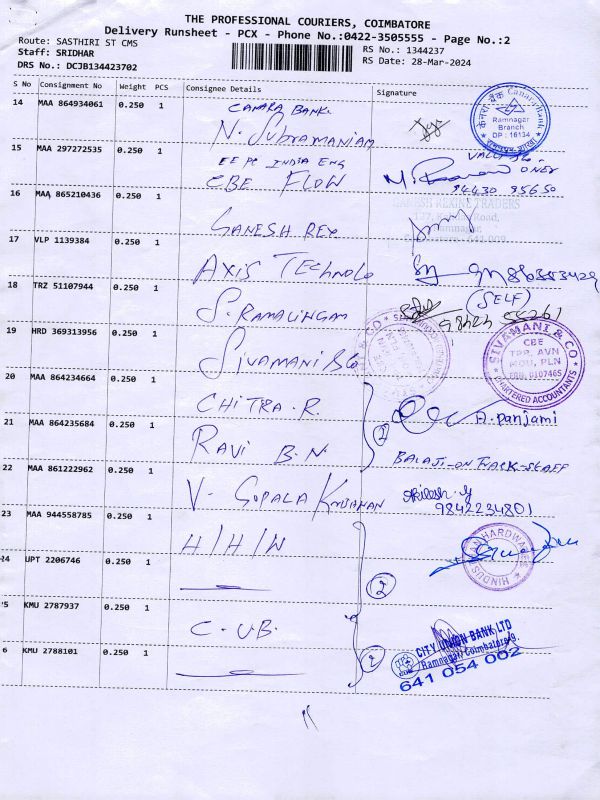 THE PROFESSIONAL COURIERS, COIMBATORE
Delivery Runsheet - PCX - Phone No.:0422-3505555 - Page No.:2
Route: SASTHIRI ST CMS
RS No.: 1344237
Staff: SRIDHAR
RS Date: 28-Mar-2024
DRS No.: DCJB134423702
S No Consignment No Weight PCS Consignee Details Signature
14 MAA 864934061 0.250 1 CANARA BANK
N. Subramaniam
Canara Bank
Ramnagar
Branch
DP : 16134
15 MAA 297272535 0.250 1 EEPC INDIA ENG
CBE FLOW
94430 95650
16 MAA 865210436 0.250 1 GANESH REX
GANESH REXINE TRADERS
17 VLP 1139384 0.250 1 AXIS TECHNOLO
18 TRZ 51107944 0.250 1 S. RAMALINGAM
(SELF)
19 HRD 369313956 0.250 1 SIVAMANI & CO
SIVAMANI & CO
CBE
TPR, AVN
MDU, PLN
FRN. 010746S
CHARTERED ACCOUNTANTS
20 MAA 864234664 0.250 1 CHITRA . R.
2
A. panjami
21 MAA 864235684 0.250 1 RAVI B.N
BALAJI-ON TRACK-STAFF
22 MAA 861222962 0.250 1 V. GOPALA
Akilesh
9842234801
23 MAA 944558785 0.250 1 H/H/W
HINDUSTAN HARDWARES
24 UPT 2206746 0.250 1
2
25 KMU 2787937 0.250 1 C. UB.
6 KMU 2788101 0.250 1
2
CITY UNION BANK LTD
Ramnagar, Coimbatore-9.
641 054 002